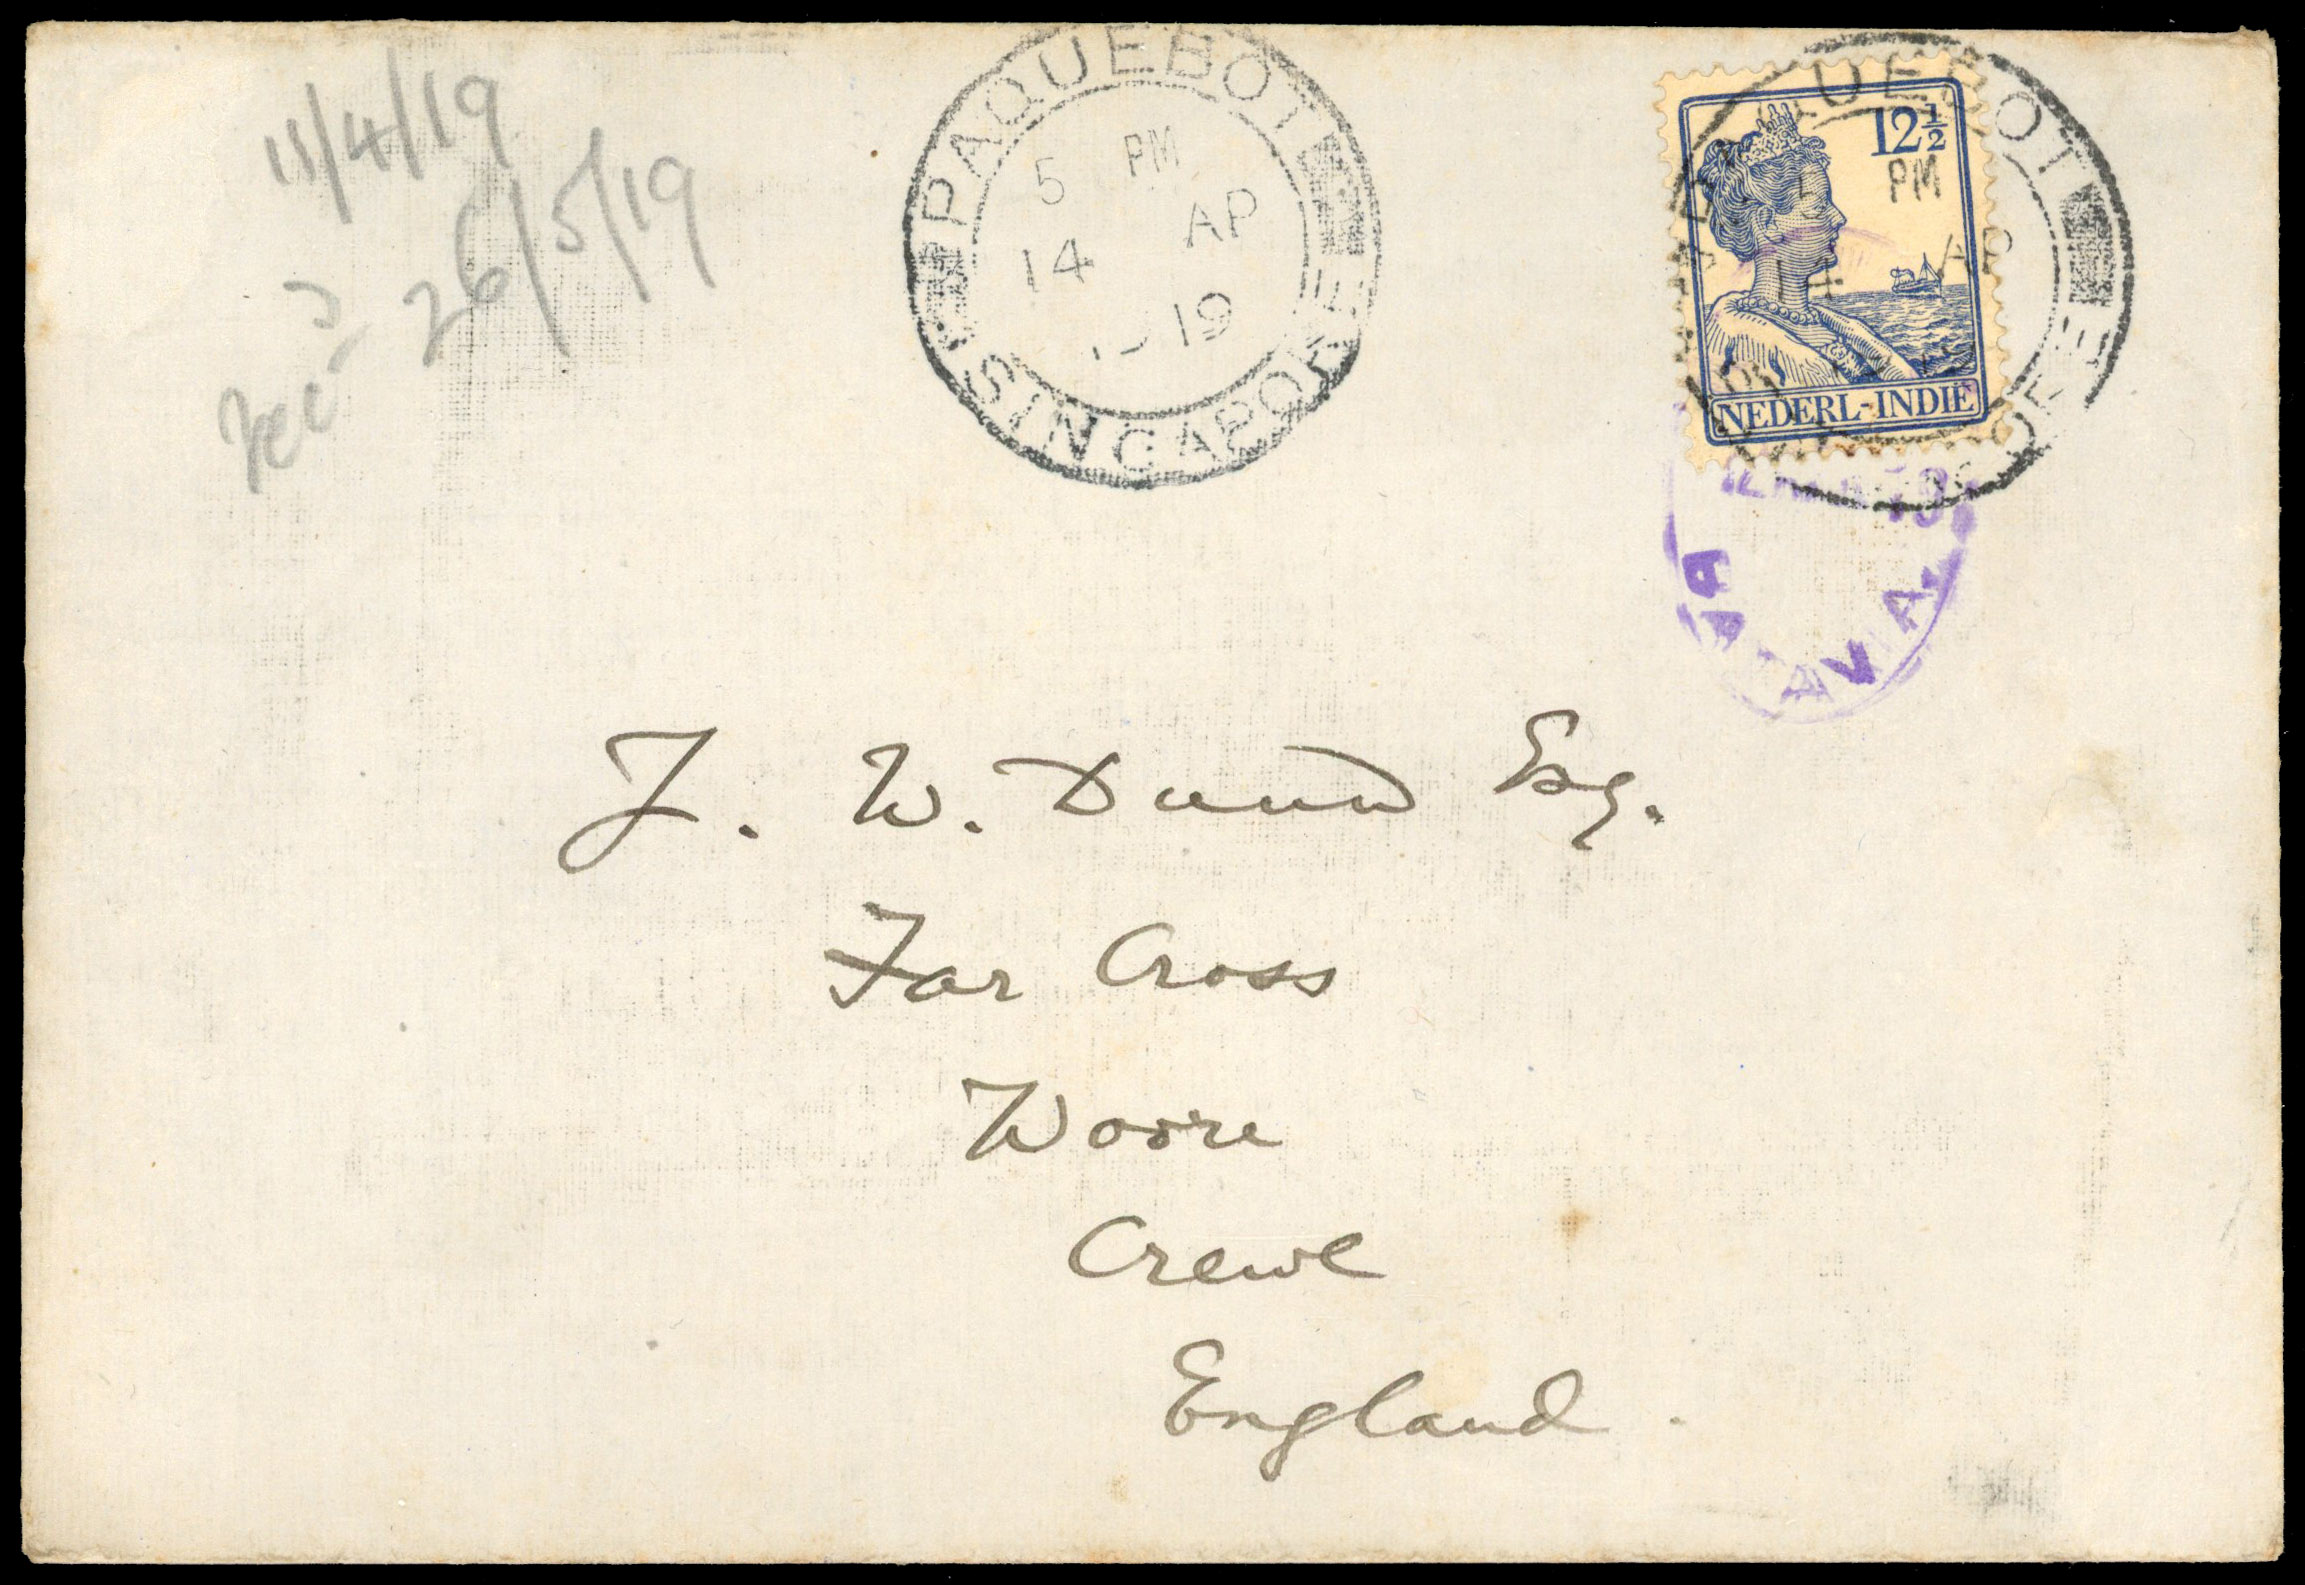 11/4/19
Rec'd 26/5/19
PAQUEBOT
5 PM
14 AP
1919
SINGAPORE
12½
NEDERL-INDIË
PAQUEBOT
5 PM
14 AP
BATAVIA.
J. W. Dunn Esq.
Far Cross
Woore
Crewe
England.